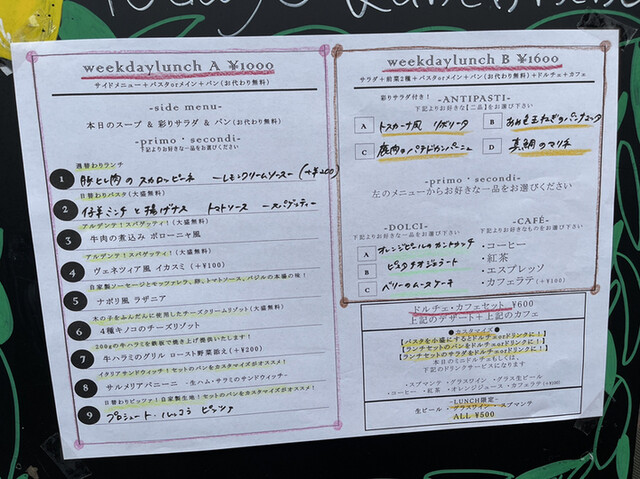 weekdaylunch A ¥1000
サイドメニュー＋パスタorメイン＋パン(お代わり無料)
-side menu-
本日のスープ & 彩りサラダ & パン(お代わり無料)
-primo・secondi-
下記よりお好きな一品をお選び下さい
週替わりランチ
1 豚ヒレ肉のスカロッピーネ ーレモンクリームソースー (+¥200)
日替わりパスタ(大盛無料)
2 仔羊ミンチと揚げナス トマトソース ースパゲッティー
アルデンテ！スパゲッティ！(大盛無料)
3 牛肉の煮込み ボローニャ風
アルデンテ！スパゲッティ！(大盛無料)
4 ヴェネツィア風 イカスミ (+¥100)
自家製ソーセージとモッツァレラ、卵、トマトソース、バジルの本場の味！
5 ナポリ風 ラザニア
木の子をふんだんに使用したチーズクリームリゾット(大盛無料)
6 4種キノコのチーズリゾット
200gの牛ハラミを鉄板で焼き上げ提供いたします！
7 牛ハラミのグリル ロースト野菜添え(+¥200)
イタリアサンドウィッチ！セットのパンをカスタマイズがオススメ！
8 サルメリアパニーニ -生ハム・サラミのサンドウィッチ-
日替わりピッツァ！自家製生地！セットのパンをカスタマイズがオススメ！
9 プロシュート・ルッコラ ピッツァ
weekdaylunch B ¥1600
サラダ＋前菜2種＋パスタorメイン＋パン(お代わり無料)＋ドルチェ＋カフェ
彩りサラダ付き！ -ANTIPASTI-
下記よりお好きな【二品】をお選び下さい
A トスカーナ風 リボリータ
B あめ色玉ねぎのパンナコッタ
C 鹿肉のパテドカンパーニュ
D 真鯛のマリネ
-primo・secondi-
左のメニューからお好きな一品をお選びください
-DOLCI-
下記よりお好きな一品をお選び下さい
A オレンジピールのカントゥッチ
B ピスタチオジェラート
C ベリーのムースケーキ
-CAFÉ-
下記よりお好きなものをお選び下さい
・コーヒー
・紅茶
・エスプレッソ
・カフェラテ(+¥100)
ドルチェ・カフェセット ¥600
上記のデザート＋上記のカフェ
●カスタマイズ●
【パスタを小盛にするとドルチェorドリンクに！】
【ランチセットのパンをドルチェorドリンクに！】
【ランチセットのサラダをドルチェorドリンクに！】
本日のミニドルチェもしくは、
下記のドリンクサービスになります
・スプマンテ ・グラスワイン ・グラス生ビール
・コーヒー ・紅茶 ・オレンジジュース ・カフェラテ(+¥100)
-LUNCH限定-
生ビール ・グラスワイン ・スプマンテ
ALL ¥500